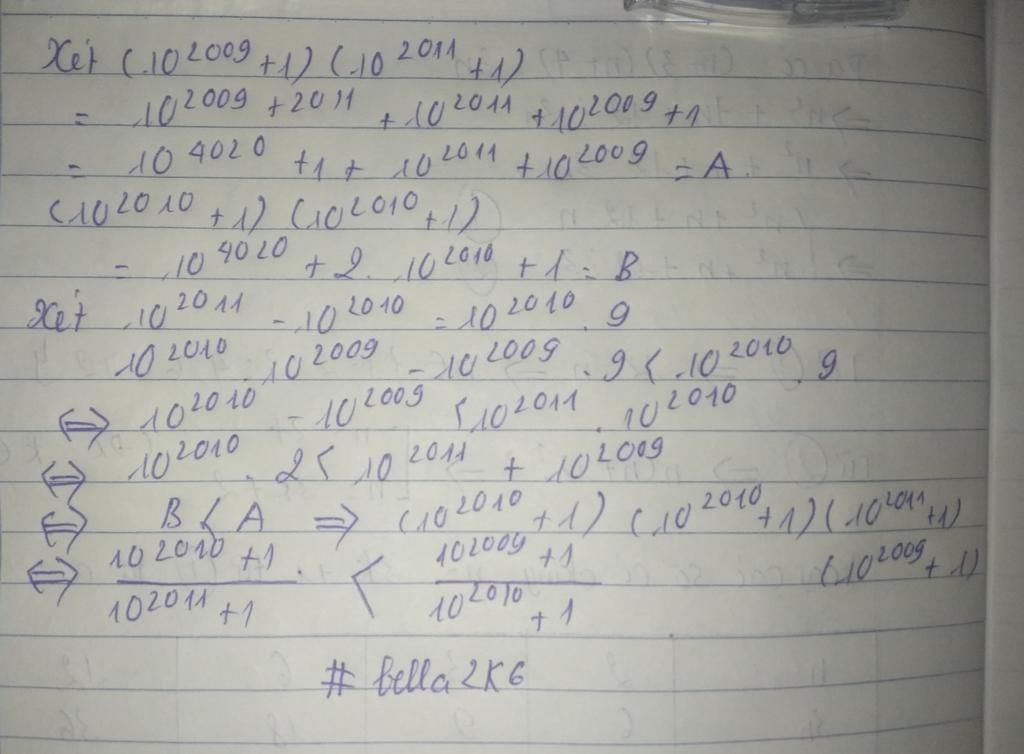 Xét (10^2009 + 1) (10^2011 + 1)
= 10^2009 + 2011 + 10^2011 + 10^2009 + 1
= 10^4020 + 1 + 10^2011 + 10^2009 = A.
(10^2010 + 1) (10^2010 + 1)
= 10^4020 + 2. 10^2010 + 1 = B
Xét 10^2011 - 10^2010 = 10^2010 . 9
10^2010 . 10^2009 - 10^2009 . 9 < 10^2010 . 9
⇔ 10^2010 - 10^2009 < 10^2011 . 10^2010
⇔ 10^2010 . 2 < 10^2011 + 10^2009
⇔ B < A ⇒ (10^2010 + 1) (10^2010 + 1) (10^2011 + 1)
(10^2009 + 1)
⇔ 10^2010 + 1 / 10^2011 + 1 . < 10^2009 + 1 / 10^2010 + 1
# bella2K6